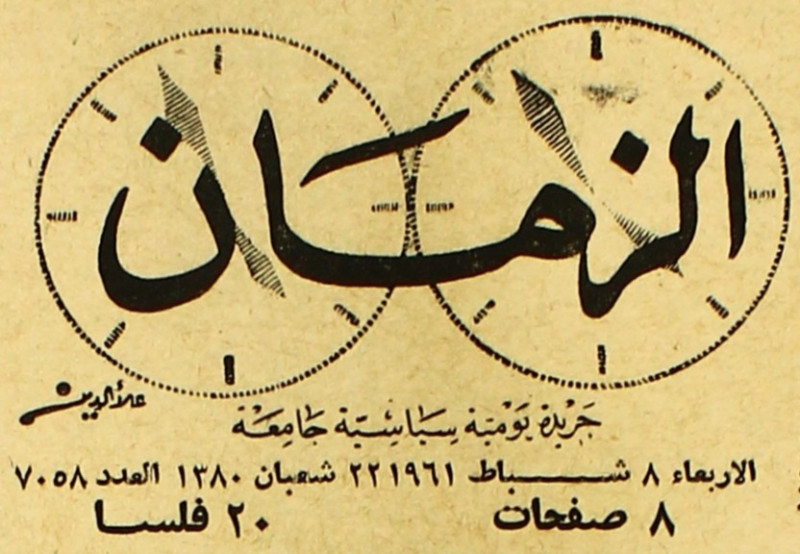 الزمان
علاءالدين
جريدة يومية سياسية جامعة
الاربعاء ٨ شباط ١٩٦١ ٢٢ شعبان ١٣٨٠ العدد ٧٠٥٨
٨ صفحات
٢٠ فلسا